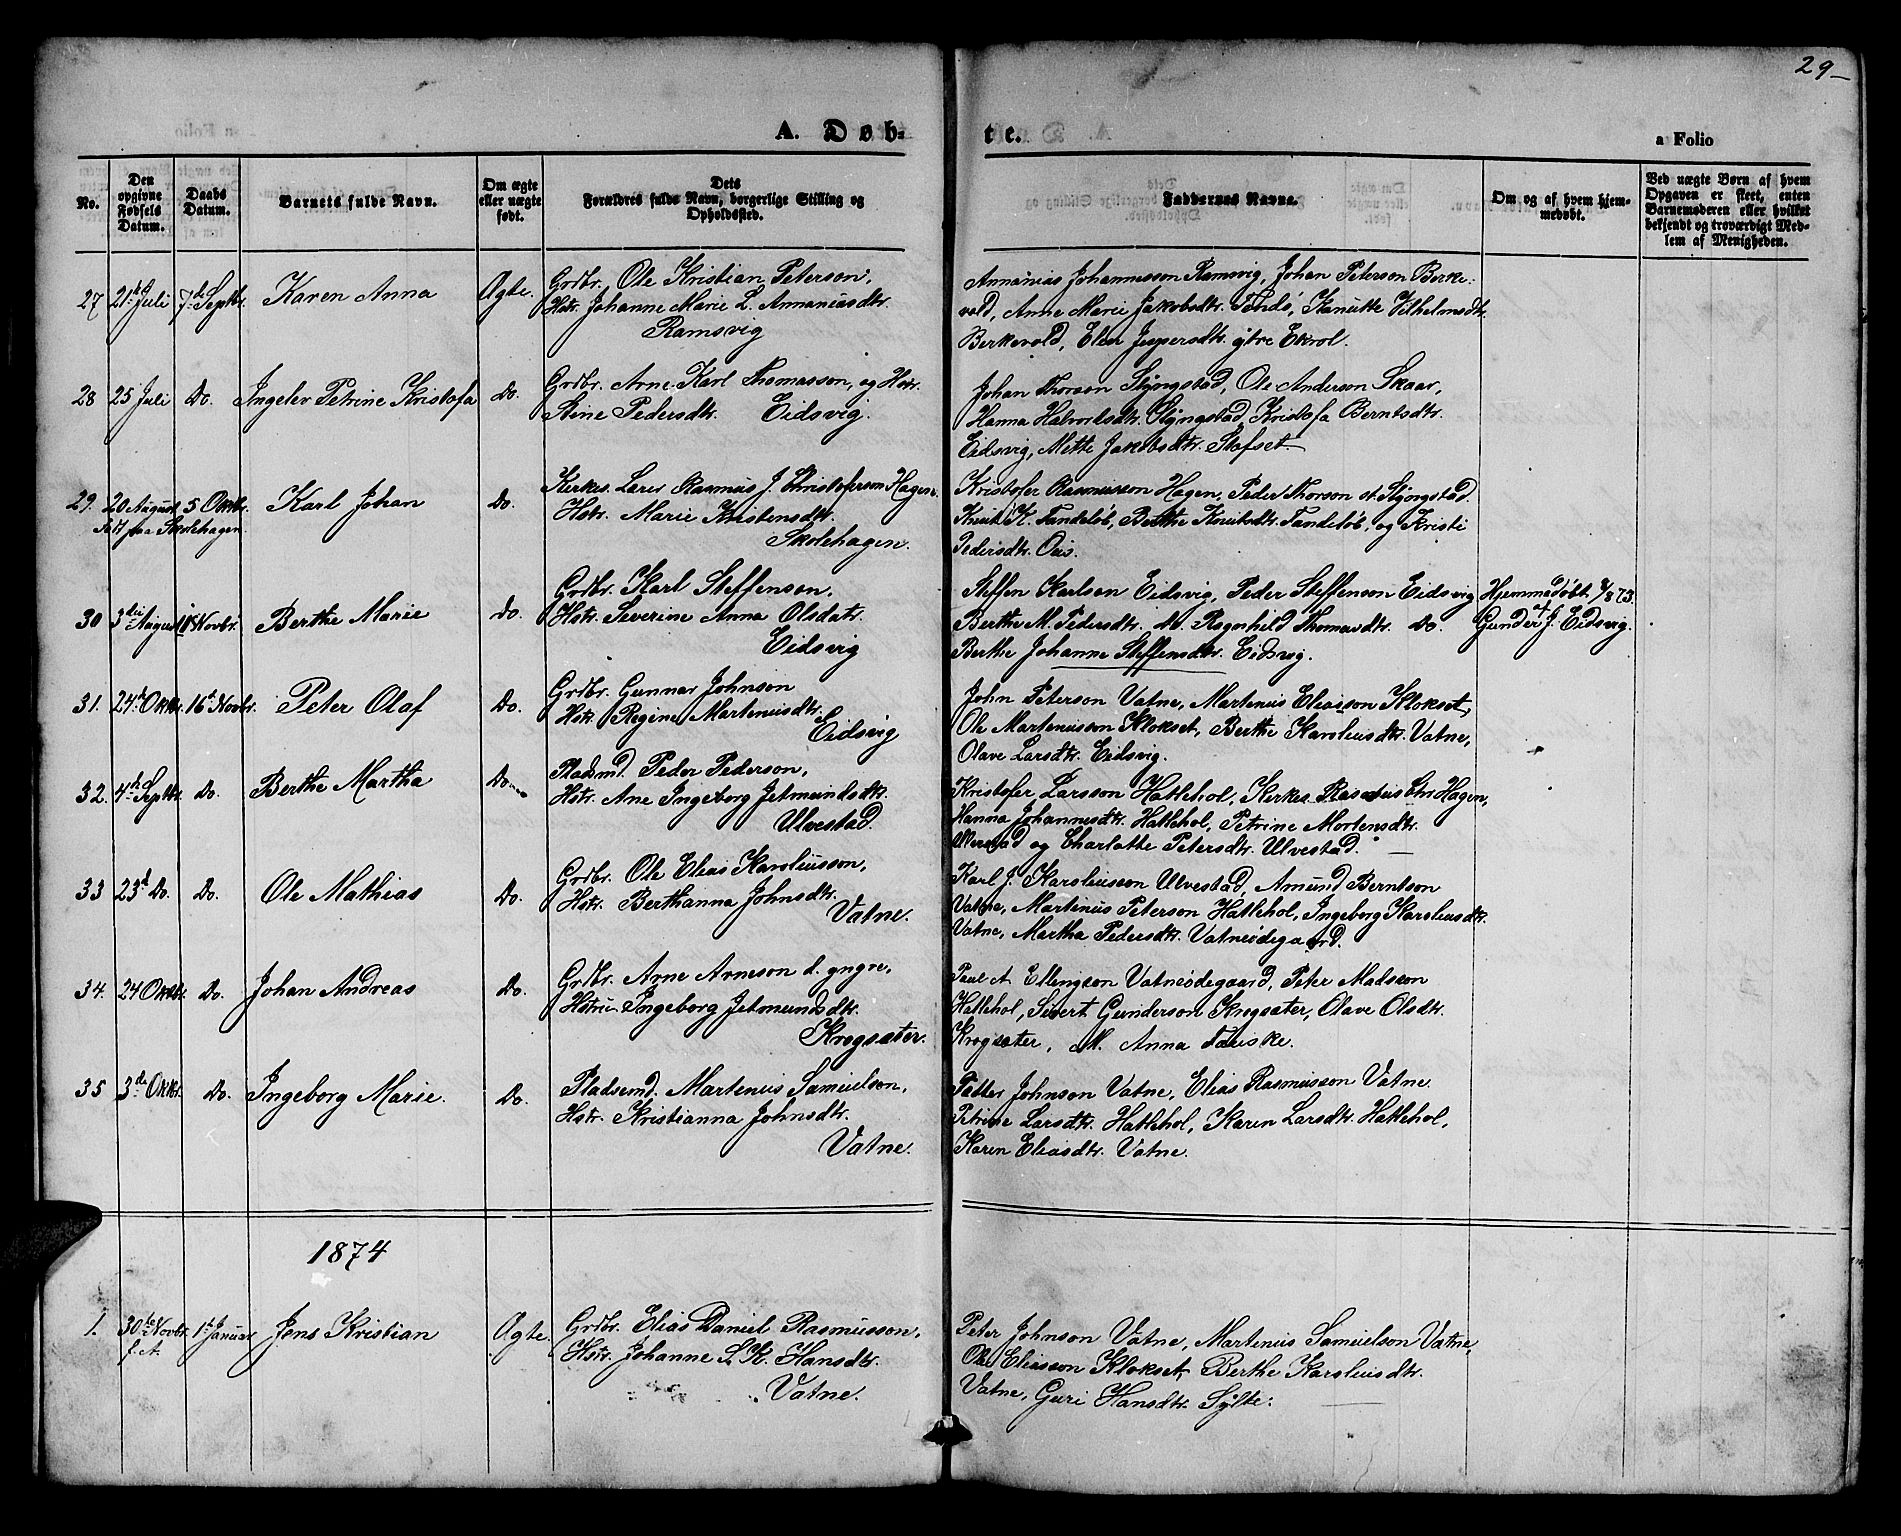 29
A. Døb-
te.
a Folio
No.
Den opgivne Fødsels Datum.
Daabs Datum.
Barnets fulde Navn.
Om ægte eller uægte født.
Dets Forældres fulde Navn, borgerlige Stilling og Opholdssted.
Faddernes Navne.
Om og af hvem hjemmedøbt.
Ved uægte Børn af hvem Opgaven er skeet, enten Barnemoderen eller hvilket bekjendt og troværdigt Medlem af Menigheden.
27 21de Juli 7de Septbr. Karen Anna Ægte.
Grdbr. Ole Kristian Peterson,
Hstr. Johanne Marie L. Annaniasdtr.
Ramsvig
Annanias Johannesson Ramsvig, Johan Peterson Berke-
vold, Anne Marie Jakobsdtr. Kanutte Vilhelmsdtr.
Berkevold, Elen Jespersdtr. ytre Ekrol.
28 25 Juli Do. Ingelev Petrine Kristofa Do.
Grdbr. Arne Karl Thomasson, og Hstr.
Stine Pedersdtr. Eidsvig.
Johan Thorson Slyngstad, Ole Anderson Skaar,
Hanna Halvordsdtr. Slyngstad, Kristofa Berntsdtr.
Eidsvig, Mette Jakobsdtr. Slafset.
29. 20 August 5 Oktbr. Karl Johan Do.
født paa Skolehagen
Kirkes. Lærer Rasmus J. Christoferson Hagen.
Hstr. Marie Kristensdtr.
Skolehagen.
Kristofer Rasmusson Hagen, Peder Thorson Slyngstad.
Knud K. Tandeløb, Berthe Knutsdtr. Tandeløb, og Kristi
Pedersdtr. Ous.
30 3die August 1 Novbr. Berthe Marie Do.
Grdbr. Karl Steffenson.
Hstr. Severine Anna Olsdatr.
Eidsvig
Steffen Karlson Eidsvig, Peder Steffenson Eidsvig
Berthe M. Pedersdtr. do. Ragenhild Thomasdtr. Do.
Berthe Johanne Steffensdtr. Eidsvig.
Hjemmedøbt 4/8 73.
af
Gunder J. Eidsvig.
31. 24de Oktbr. 16de Novbr. Peter Olaf Do.
Grdbr. Gunnar Johnson
Hstr. Regine Martenusdtr.
Eidsvig
John Peterson Vatne, Martenus Eliasson Klokset,
Ole Martenusson Klokset, Berthe Karoliusdtr. Vatne,
Olave Larsdtr. Eidsvig.
32. 4de Septbr. Do. Berthe Martha Do.
Pladsmd. Peder Pederson,
Hstr. Ane Ingeborg Jetmundsdtr.
Ulvestad.
Kristofer Larsson Hatlehol, Kirkes. Rasmus Chr Hagen,
Hanna Johannesdtr. Hatlehol, Petrine Mortensdtr.
og Charlotte Petersdtr. Ulvestad.
33 23d Do. Do. Ole Mathias Do.
Grdbr. Ole Elias Karoliusson,
Hstr. Berthanna Johnsdtr.
Vatne.
Karl J. Karoliusson Ulvestad, Amund Berntson
Vatne, Martinus Peterson Hatlehol, Ingeborg Karoliusdtr.
Vatne, Martha Pedersdtr. Vatneødegaard.
34. 24 Oktbr. Do. Johan Andreas Do.
Grdbr. Arne Arneson d. yngre,
Hstru Ingeborg Jetmundsdtr.
Krogsæter.
Paul A Ellingson Vatneødegaard, Peter Madsson
Hatlehol, Sivert Gunderson Krogsæter, Olave Olsdtr.
Krogsæter, M. Anna Tauske.
35 3de Oktbr. Do. Ingeborg Marie. Do.
Pladsemd. Martenus Samuelson,
Hstr. Kristianna Johnsdtr.
Vatne.
Petter Johnson Vatne, Elias Rasmusson Vatne
Petrine Larsdtr. Hatlehol, Karen Larsdtr. Hatlehol,
Karen Eliasdtr. Vatne.
1874
1. 30te Novbr. 1ste Januar Jens Kristian Ægte.
f. A.
Grdbr. Elias Daniel Rasmusson,
Hstr. Johanne L. K. Hansdtr.
Vatne.
Peter Johnson Vatne, Martenus Samuelson Vatne,
Ole Eliasson Klokset, Berthe Karoliusdtr.
Vatne, Guri Hansdtr. Sylte.